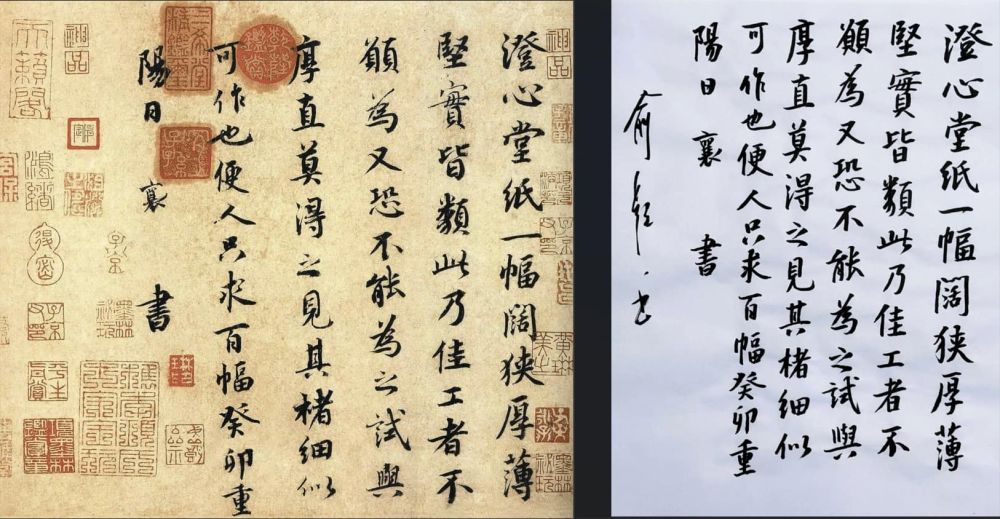 神品
澄心堂紙一幅闊狹厚薄
堅實皆類此乃佳工者不
願為又恐不能為之試與
厚直莫得之見其楮細似
可作也便人只求百幅癸卯重
陽日 襄 書
子京
神品
天籟閣
澄心堂紙一幅闊狹厚薄
堅實皆類此乃佳工者不
願為又恐不能為之試與
厚直莫得之見其楮細似
可作也便人只求百幅癸卯重
陽日 襄 書
俞